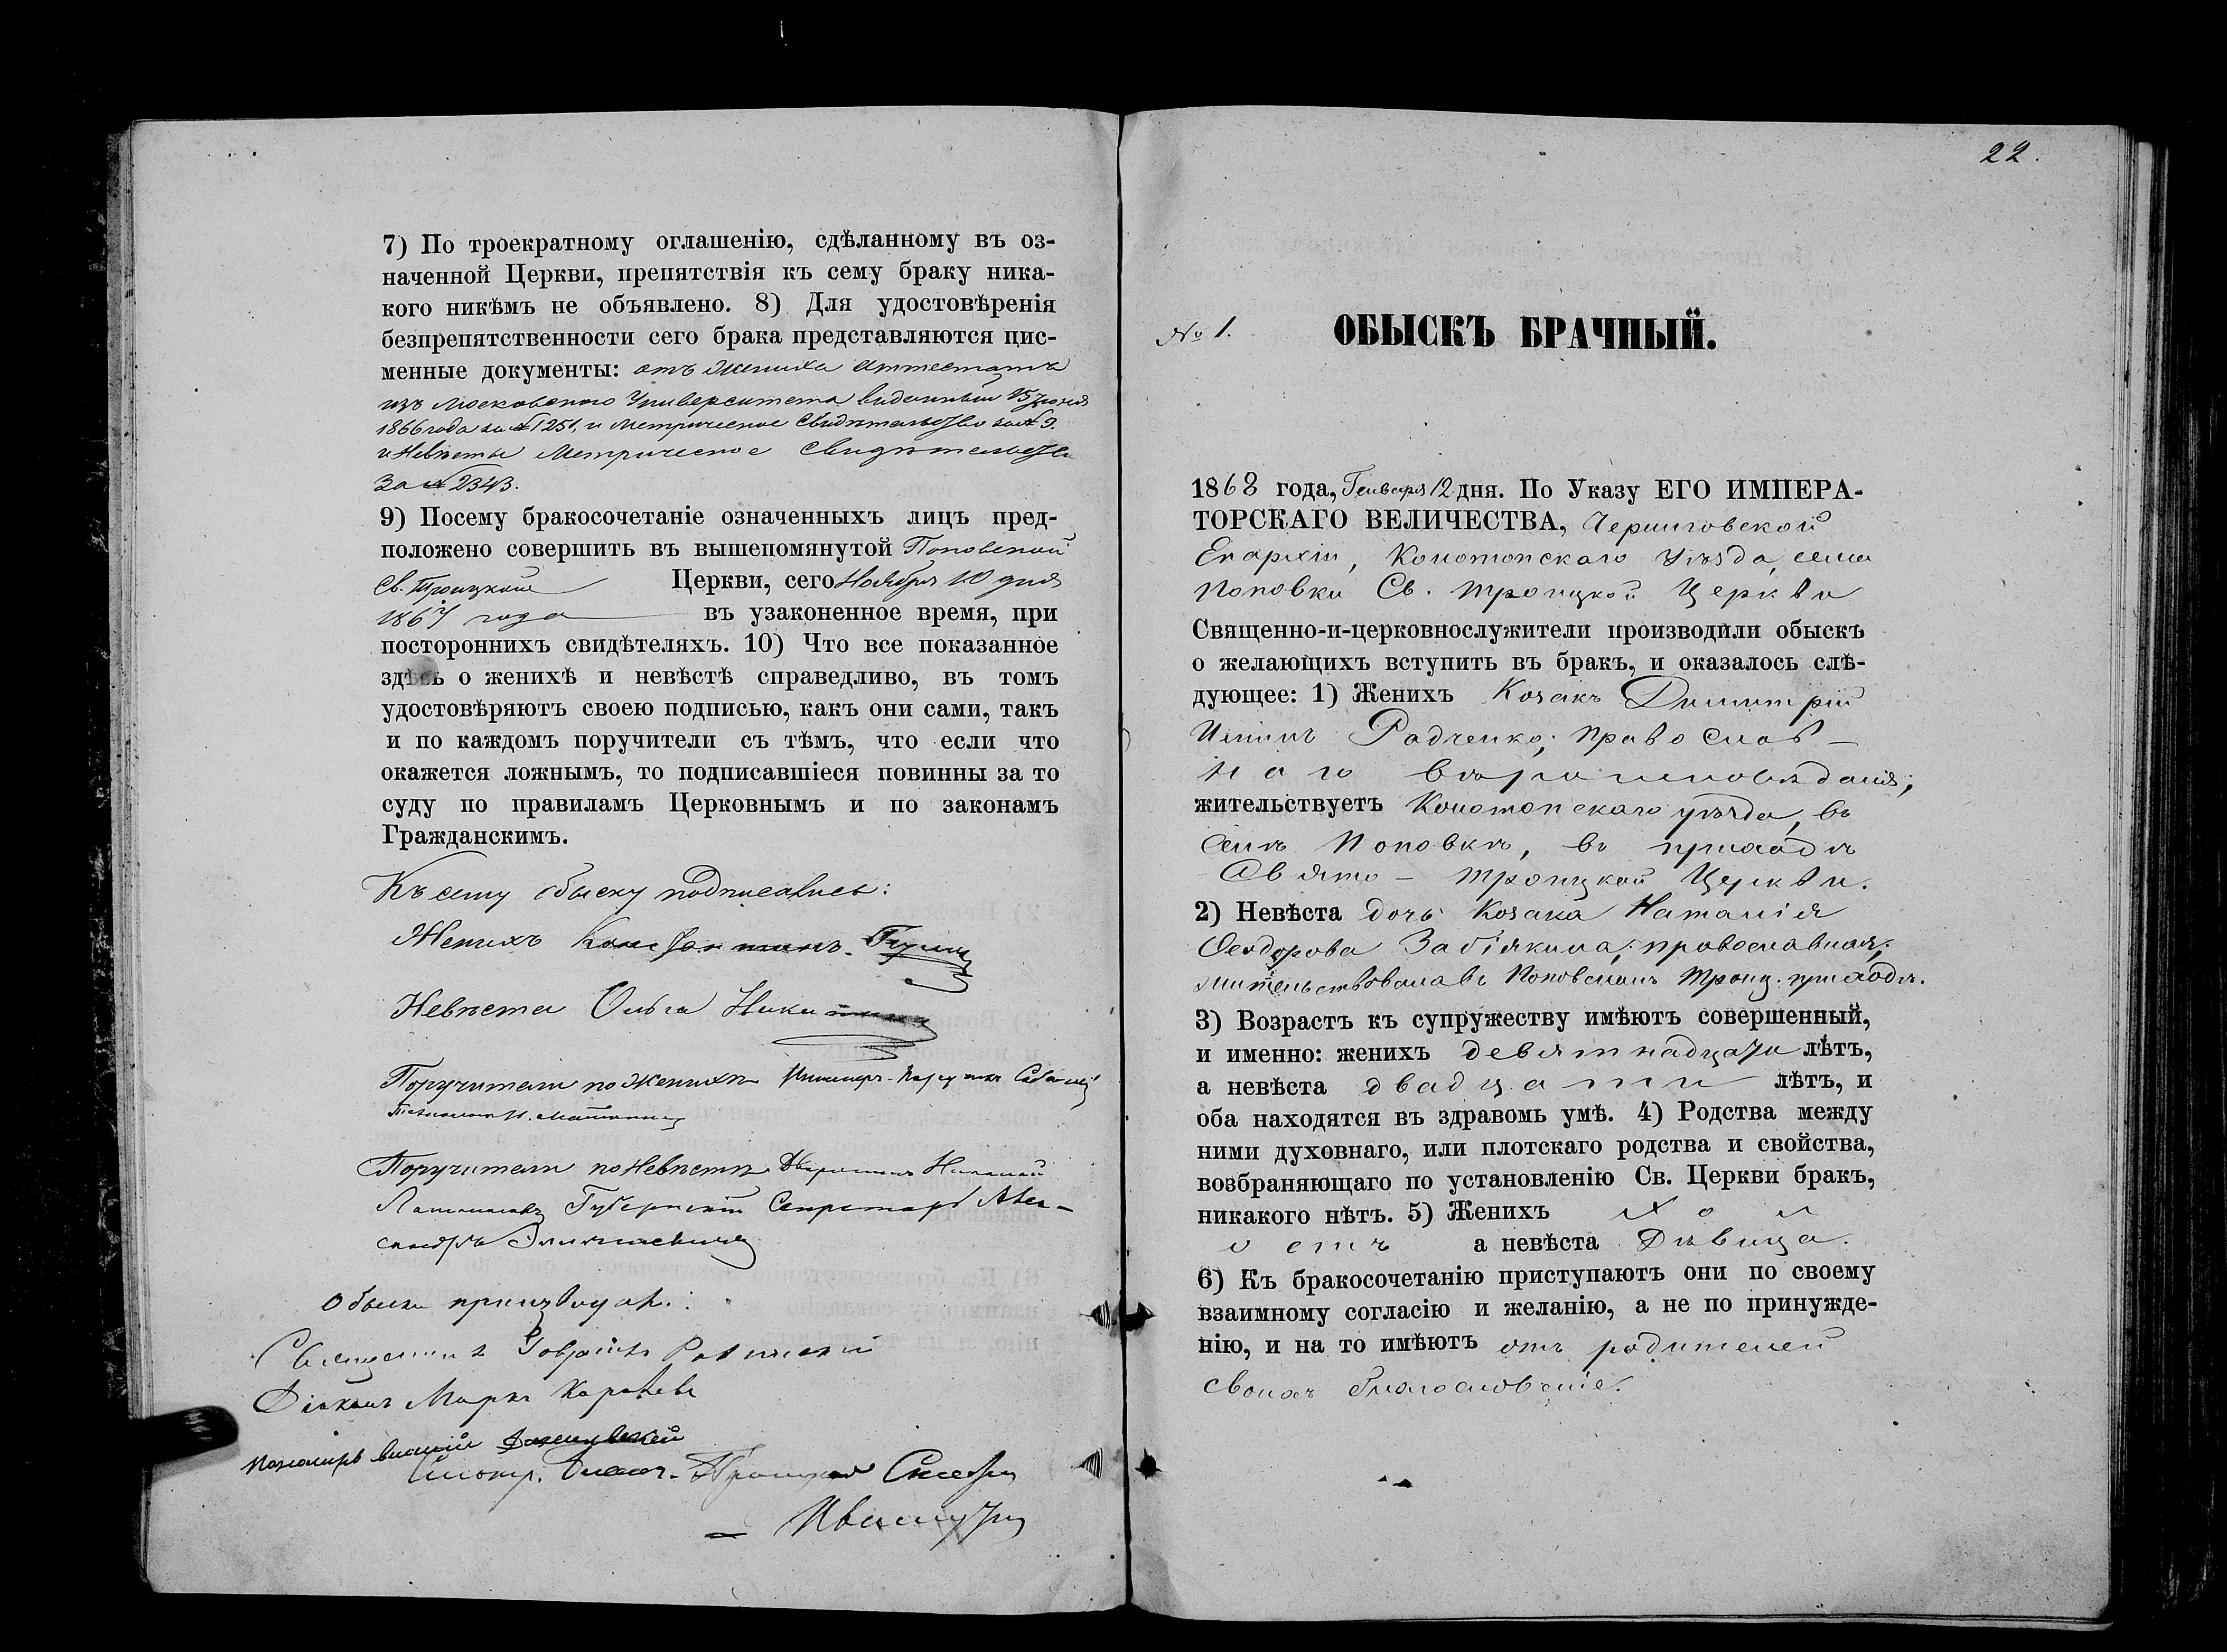 7) По троекратному оглашенію, сдѣланному въ оз-
наченной Церкви, препятствія къ сему браку ника-
кого никѣмъ не объявлено. 8) Для удостовѣренія
безпрепятственности сего брака представляются пис-
менные документы: отъ Жениха Аттестатъ
изъ Московского Университета виданный 15 Іюня
1866 года за № 1251, и Метрическое Свидѣтельство за № 9.
и Невѣсты Метрическое Свидѣтельство
За № 2343.
9) Посему бракосочетаніе означенныхъ лицъ пред-
положено совершить въ вышепомянутой Поповской
Св. Троицкой Церкви, сего Ноября 10 дня
1867 года въ узаконенное время, при
постороннихъ свидѣтеляхъ. 10) Что все показанное
здѣсь о женихѣ и невѣстѣ справедливо, въ томъ
удостовѣряютъ своею подписью, какъ они сами, такъ
и по каждомъ поручители съ тѣмъ, что если что
окажется ложнымъ, то подписавшіеся повинны за то
суду по правиламъ Церковнымъ и по законамъ
Гражданскимъ.
Къ сему обыску подписались:
Женихъ Константинъ
Невѣста Ольга
Поручители по Женихѣ
Поручители по Невѣстѣ Дворянинъ Николай
Губернскій Секретарь Алек-
сандръ
Обыскъ производил:
Священникъ
Діаконъ Маркъ
Пономарь
22.
№ 1.
ОБЫСКЪ БРАЧНЫЙ.
1868 года, Генваря 12 дня. По Указу ЕГО ИМПЕРА-
ТОРСКАГО ВЕЛИЧЕСТВА, Черниговской
Епархіи, Конотопскаго Уѣзда, села
Поповки Св. Троицкой Церкви
Священно-и-церковнослужители производили обыскъ
о желающихъ вступить въ бракъ, и оказалось слѣ-
дующее: 1) Женихъ Козакъ Димитрій
Илiинъ Радченко; Православ-
наго вѣроисповѣданія;
жительствуетъ Конотопскаго уѣзда, въ
селѣ Поповкѣ, въ приходѣ
Свято-Троицкой Церкви.
2) Невѣста дочь Козака Наталія
Ѳеодорова Забіякина; православная;
жительствовала въ Поповскомъ Троиц. приходѣ.
3) Возрастъ къ супружеству имѣютъ совершенный,
и именно: женихъ девятнадцати лѣтъ,
а невѣста двадцати лѣтъ, и
оба находятся въ здравомь умѣ. 4) Родства между
ними духовнаго, или плотскаго родства и свойства,
возбраняющаго по установленію Св. Церкви бракъ,
никакого нѣтъ. 5) Женихъ Хол
остъ а невѣста Дѣвица.
6) Къ бракосочетанію приступаютъ они по своему
взаимному согласію и желанію, а не по принужде-
нію, и на то имѣютъ отъ родителей
своихъ благословеніе.